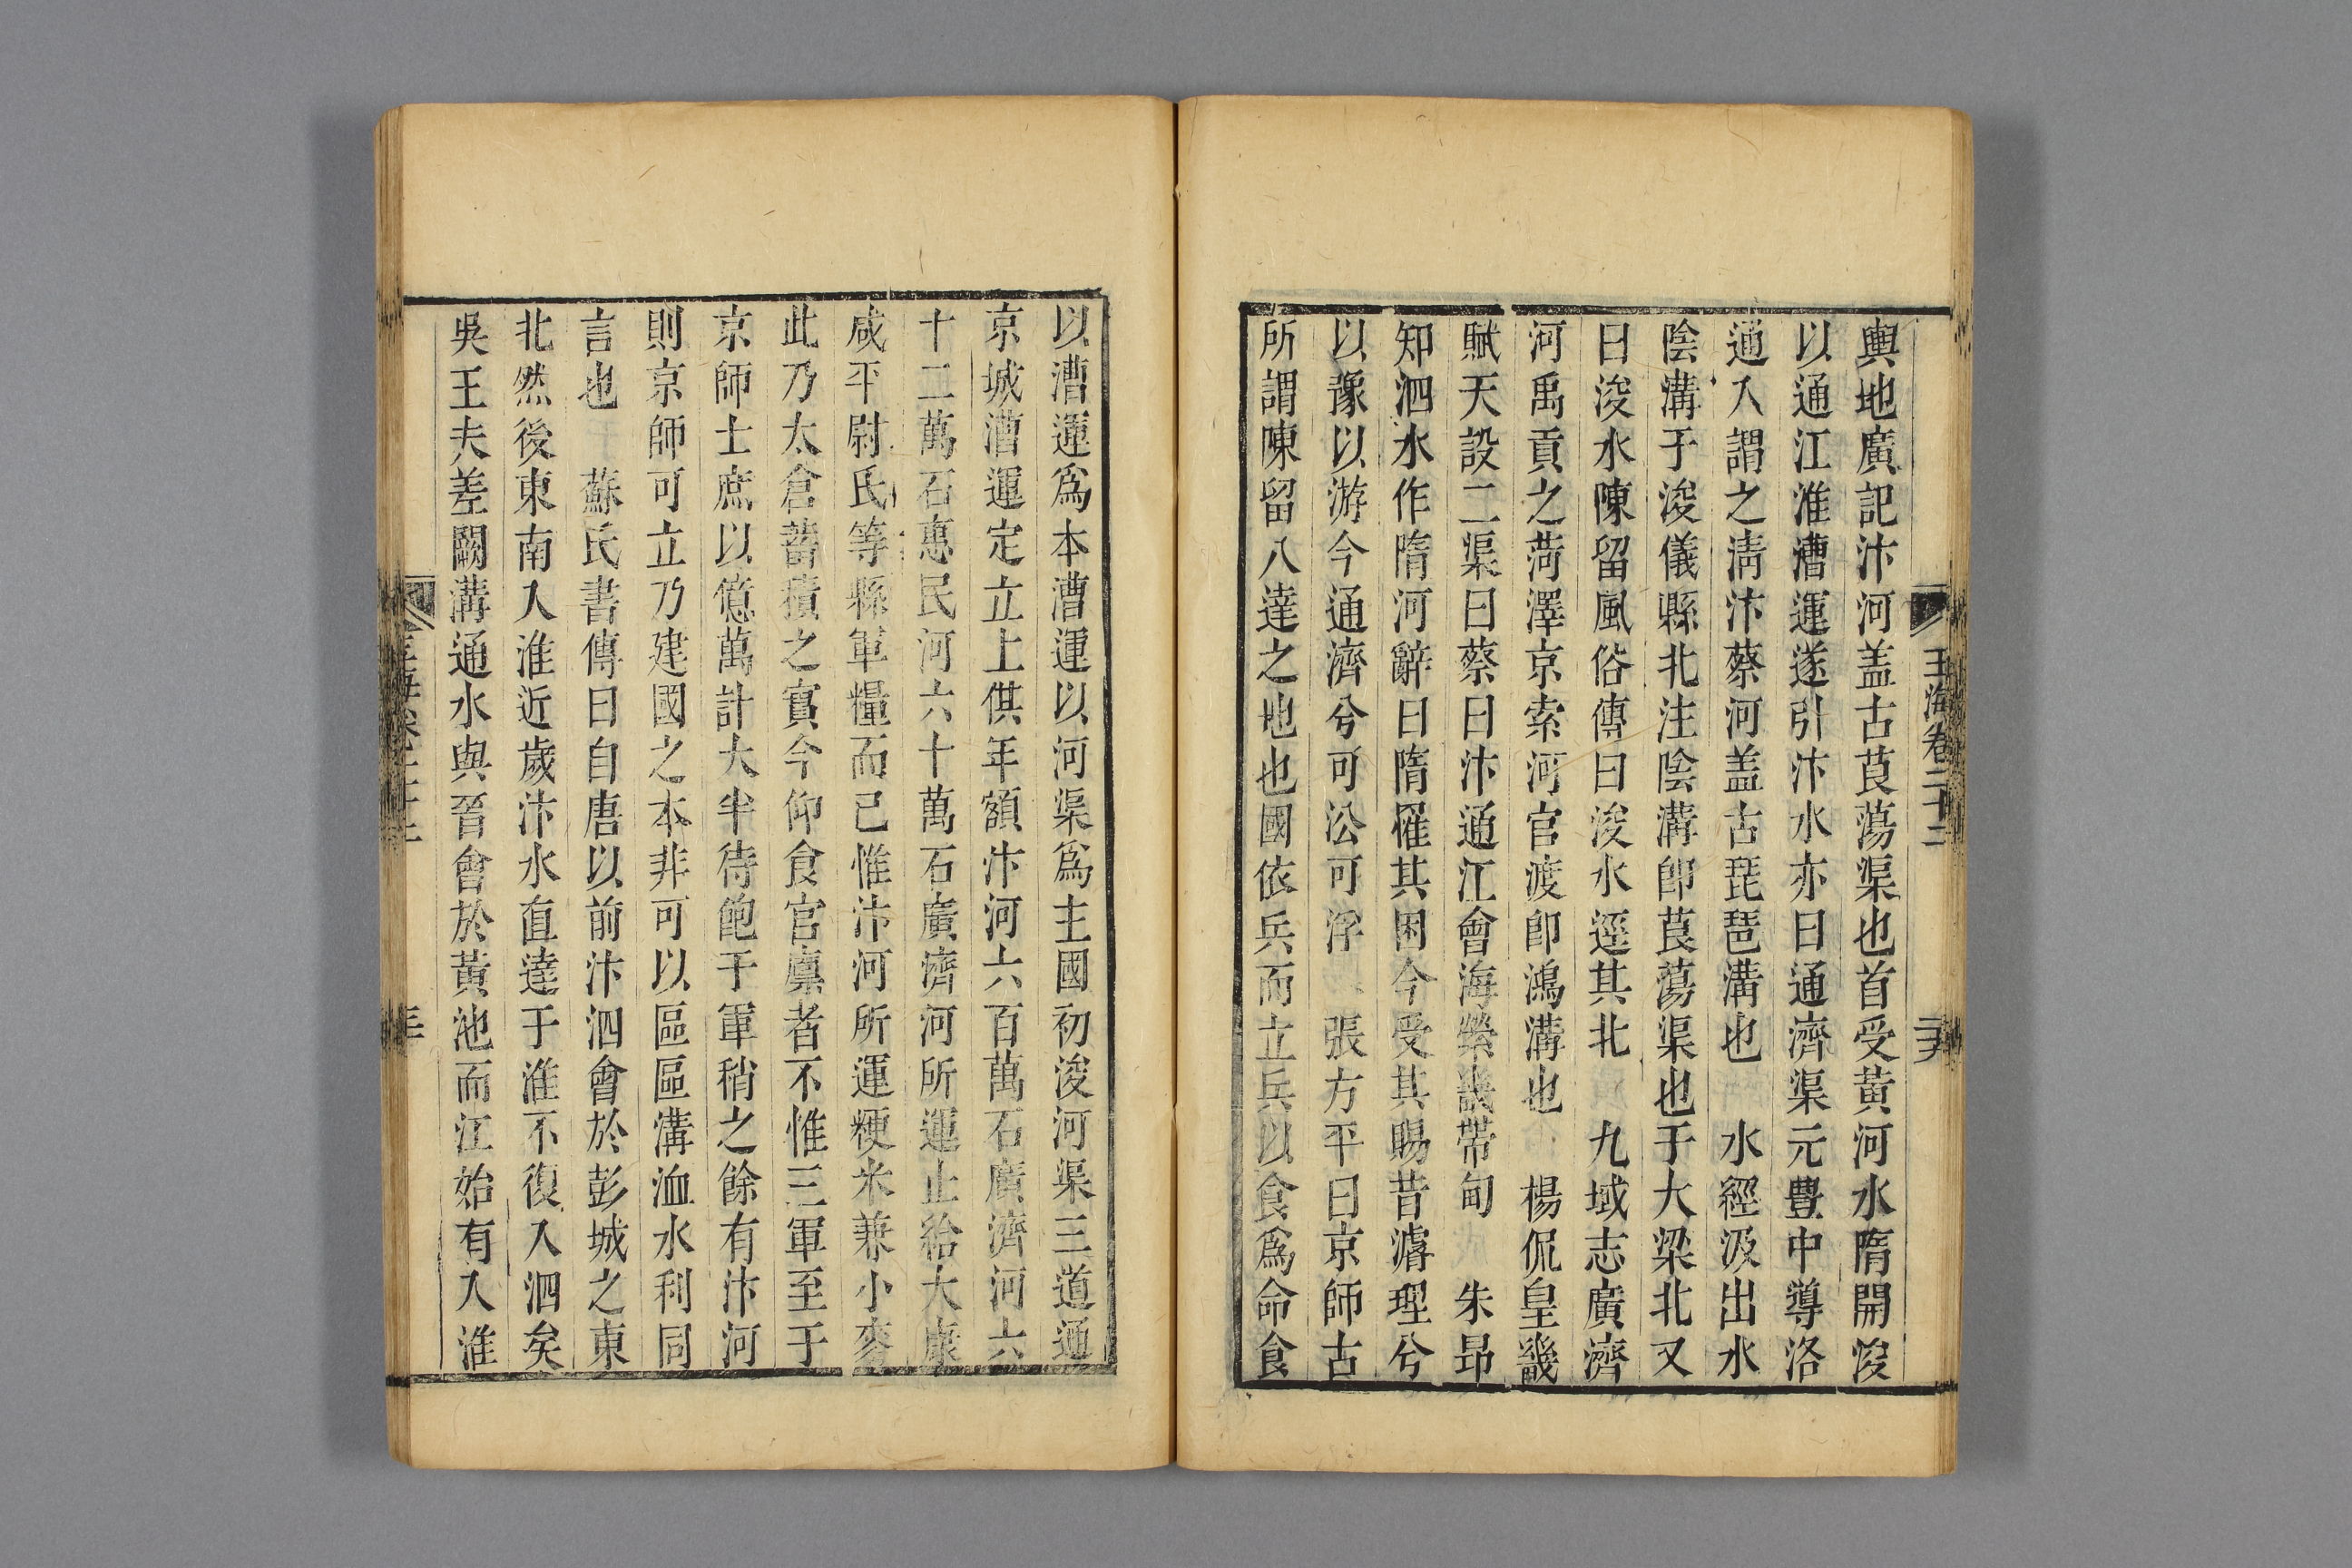 玉海卷二十二
輿地廣記汴河盖古茛蕩渠也首受黃河水隋開浚
以通江淮漕運遂引汴水亦曰通濟渠元豐中導洛
通入謂之淸汴蔡河盖古琵琶溝也 水經汲出水
陰溝于浚儀縣北注陰溝卽茛蕩渠也于大梁北又
曰浚水陳留風俗傳曰浚水逕其北 九域志廣濟
河禹貢之菏澤京索河官渡卽鴻溝也 楊侃皇畿
賦天設二渠曰蔡曰汴通江會海縈畿帶甸 朱昂
知泗水作隋河辭曰隋罹其困今受其賜昔濬理兮
以豫以游今通濟兮可㳂可浮 張方平曰京師古
所謂陳留八達之地也國依兵而立兵以食爲命食
以漕運爲本漕運以河渠爲主國初浚河渠三道通
京城漕運定立上供年額汴河六百萬石廣濟河六
十二萬石惠民河六十萬石廣濟河所運止給太康
咸平尉氏等縣軍糧而已惟汴河所運粳米兼小麥
此乃太倉蓄積之實今仰食官廩者不惟三軍至于
京師士庶以億萬計大半待飽于軍稍之餘有汴河
則京師可立乃建國之本非可以區區溝洫水利同
言也 蘇氏書傳曰自唐以前汴泗會於彭城之東
北然後東南入淮近歲汴水直達于淮不復入泗矣
吳王夫差闕溝通水與晉會於黃池而江始有入淮